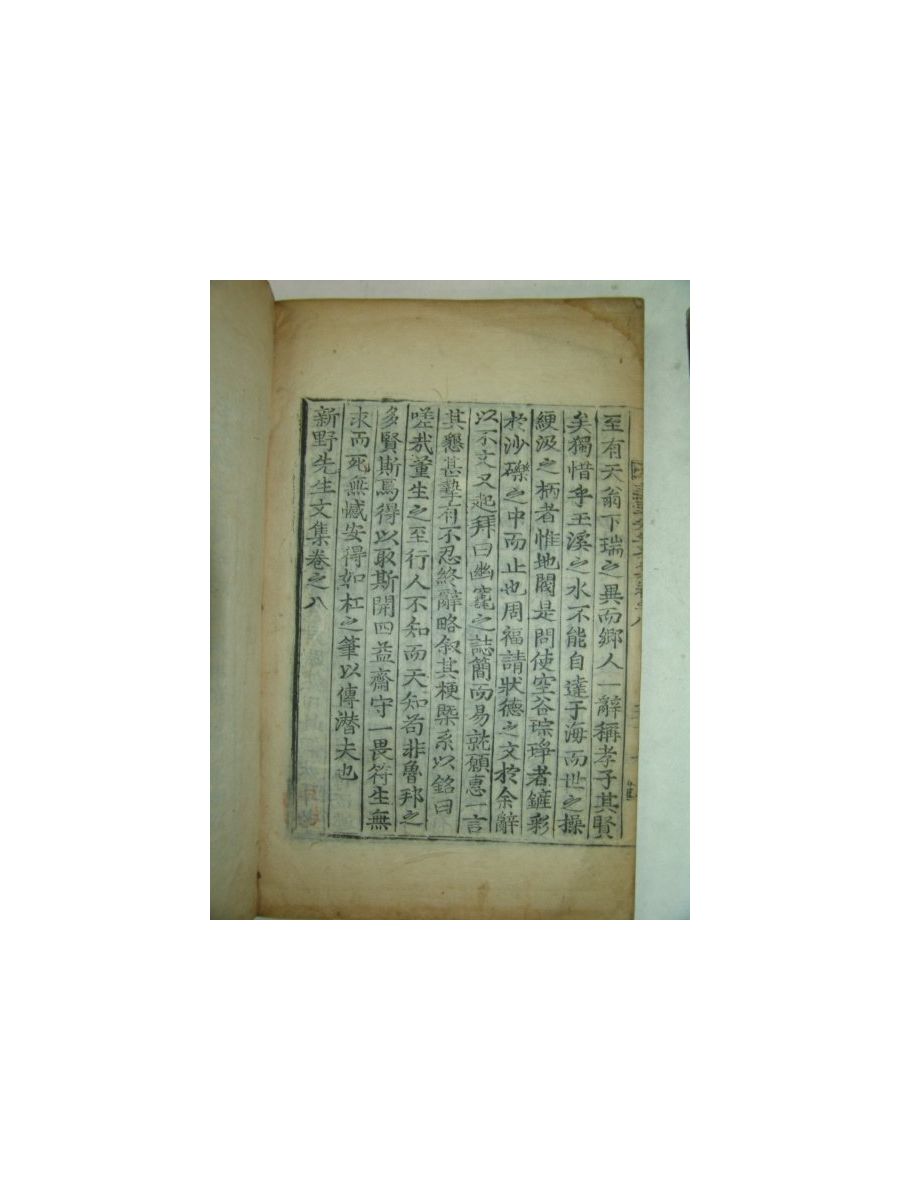 至有天翁下瑞之異而鄉人一辭稱孝子其賢
矣獨惜乎玉溪之水不能自達于海而世之操
綆汲之柄者惟地閥是問使空谷琮琤者鏟彩
於沙礫之中而止也周福請狀德之文於余辭
以不文又起拜曰幽竁之誌簡而易就願惠一言
其懇甚摯有不忍終辭略叙其梗槩系以銘曰
嗟哉董生之至行人不知而天知苟非魯邦之
多賢斯焉得以取斯開四益齋守一畏符生無
求而死無憾安得如杠之筆以傳潛夫也
新野先生文集卷之八